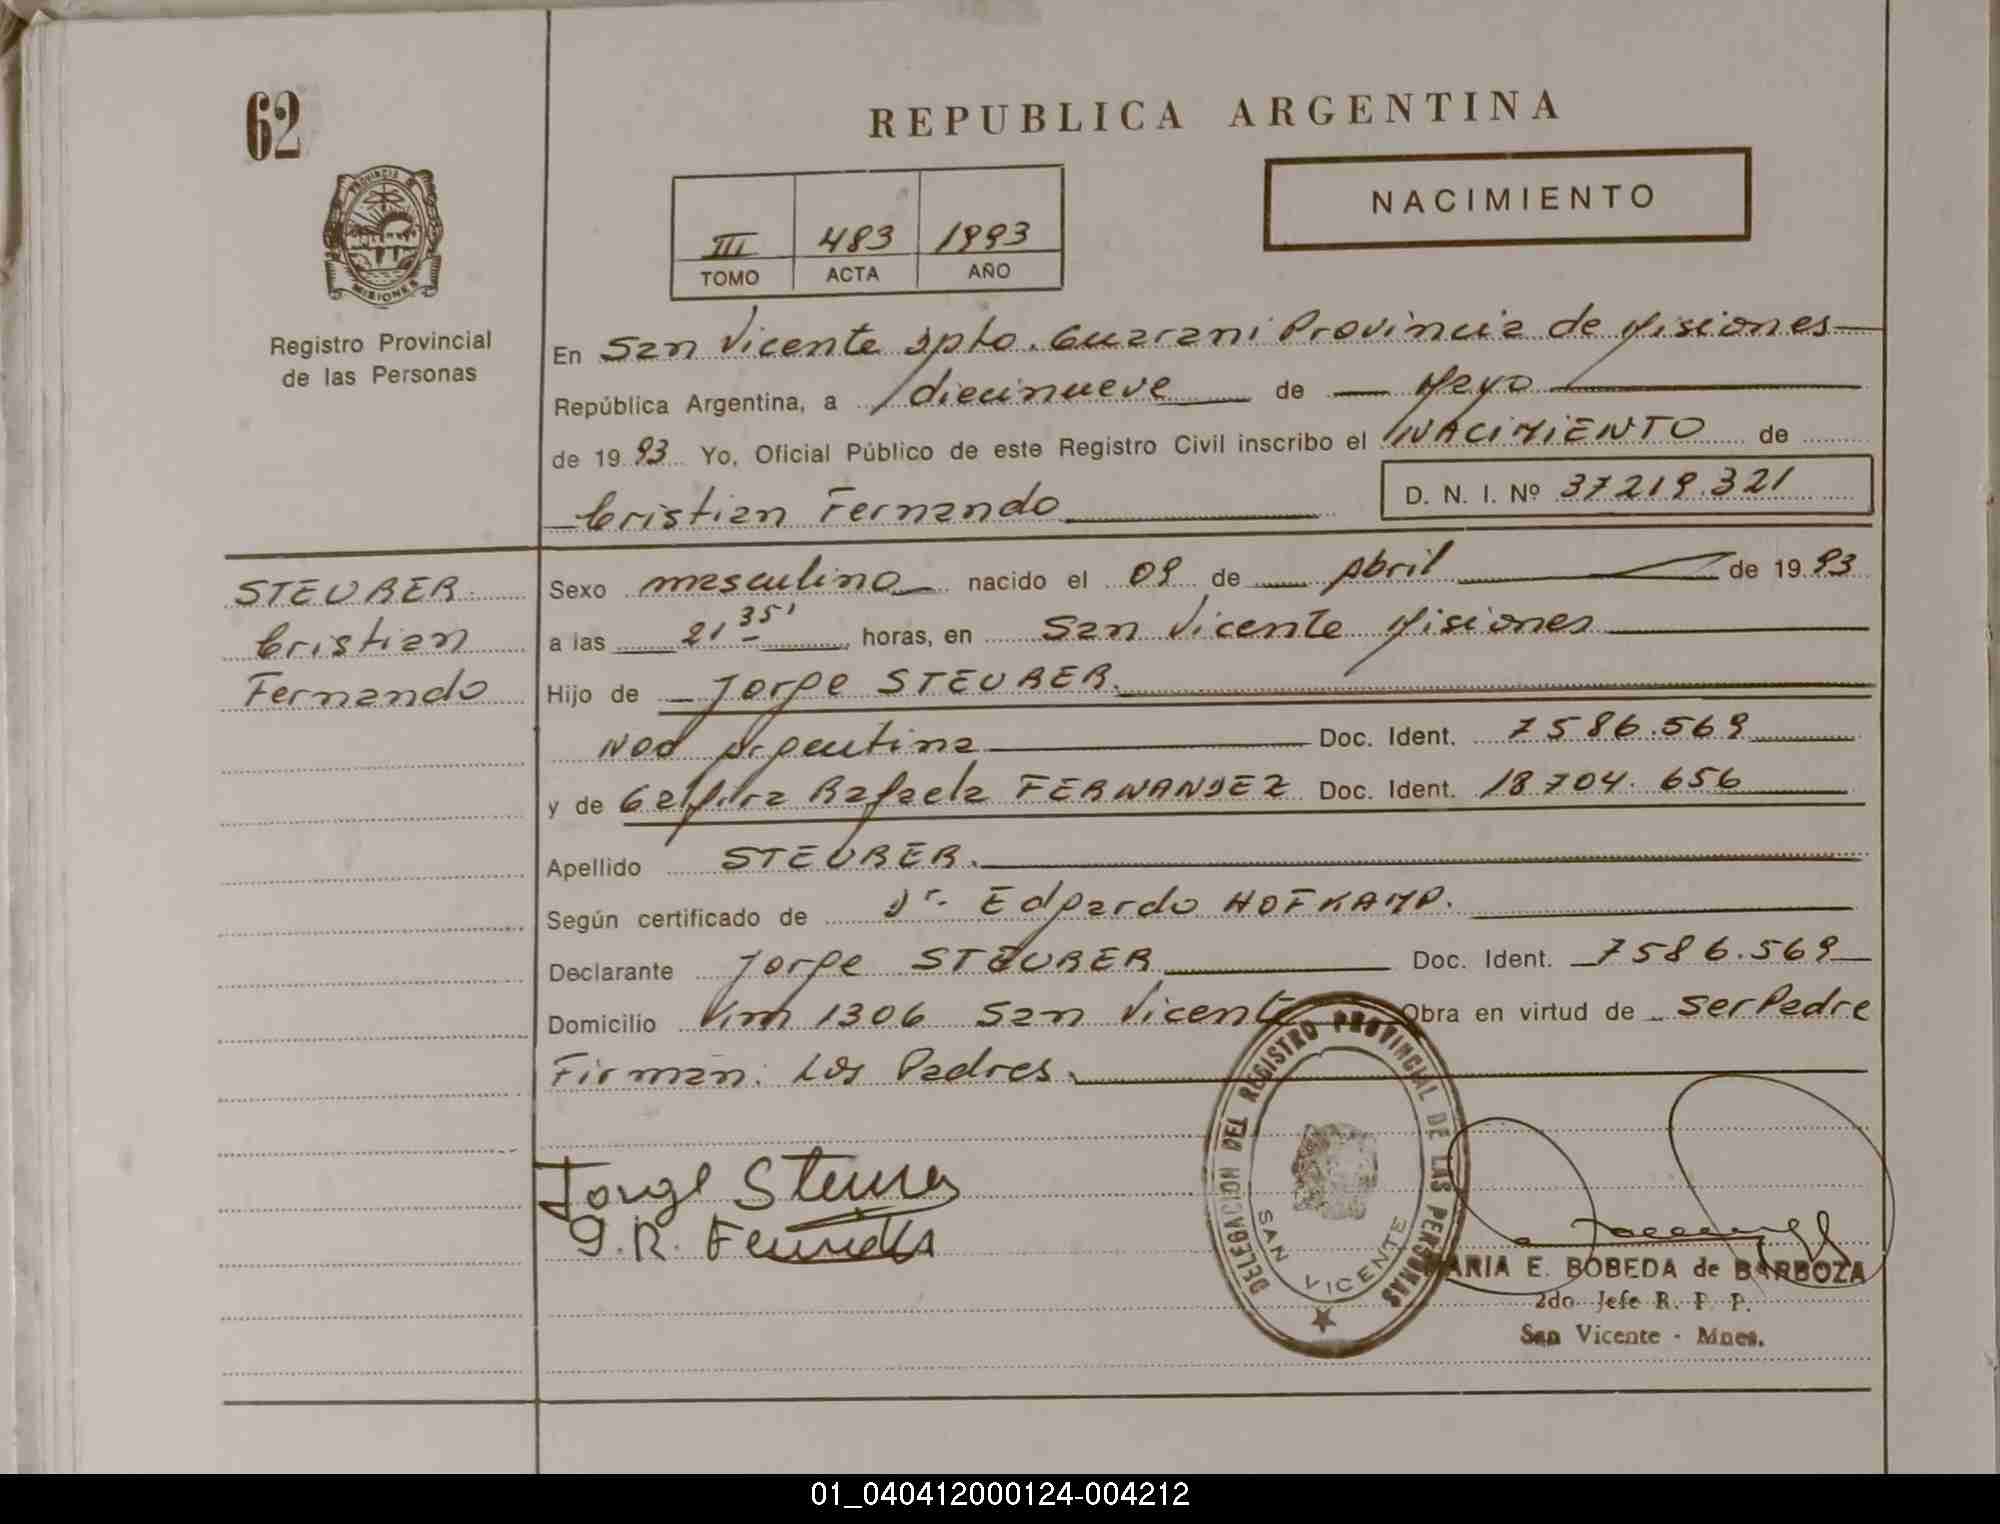 62
REPUBLICA ARGENTINA
NACIMIENTO
III 483 1993
TOMO ACTA AÑO
PROVINCIA DE
MISIONES
Registro Provincial
de las Personas
En San Vicente Dpto. Guarani Provincia de Misiones
República Argentina, a diecinueve de Mayo
de 1993 Yo, Oficial Público de este Registro Civil inscribo el NACIMIENTO de
D. N. I. Nº 37219.321
Cristian Fernando
STEURER
Cristian
Fernando
Sexo masculino nacido el 09 de Abril de 1993
a las 21 35' horas, en San Vicente Misiones
Hijo de Jorge STEURER.
Argentina Doc. Ident. 7586.569
y de Rafaela FERNANDEZ Doc. Ident. 18.704.656
Apellido STEURER.
Según certificado de Dr. Edgardo HOFKAMP.
Declarante Jorge STEURER Doc. Ident. 7586.569
Domicilio Km 1306 San Vicente Obra en virtud de Ser Padre
Firman: Los Padres.
Jorge Steurer
G.R. Fernandez
DELEGACION DEL REGISTRO PROVINCIAL DE LAS PERSONAS
SAN VICENTE
MARIA E. BOBEDA de BARBOZA
2do Jefe R. P. P.
San Vicente - Mnes.
01_040412000124-004212